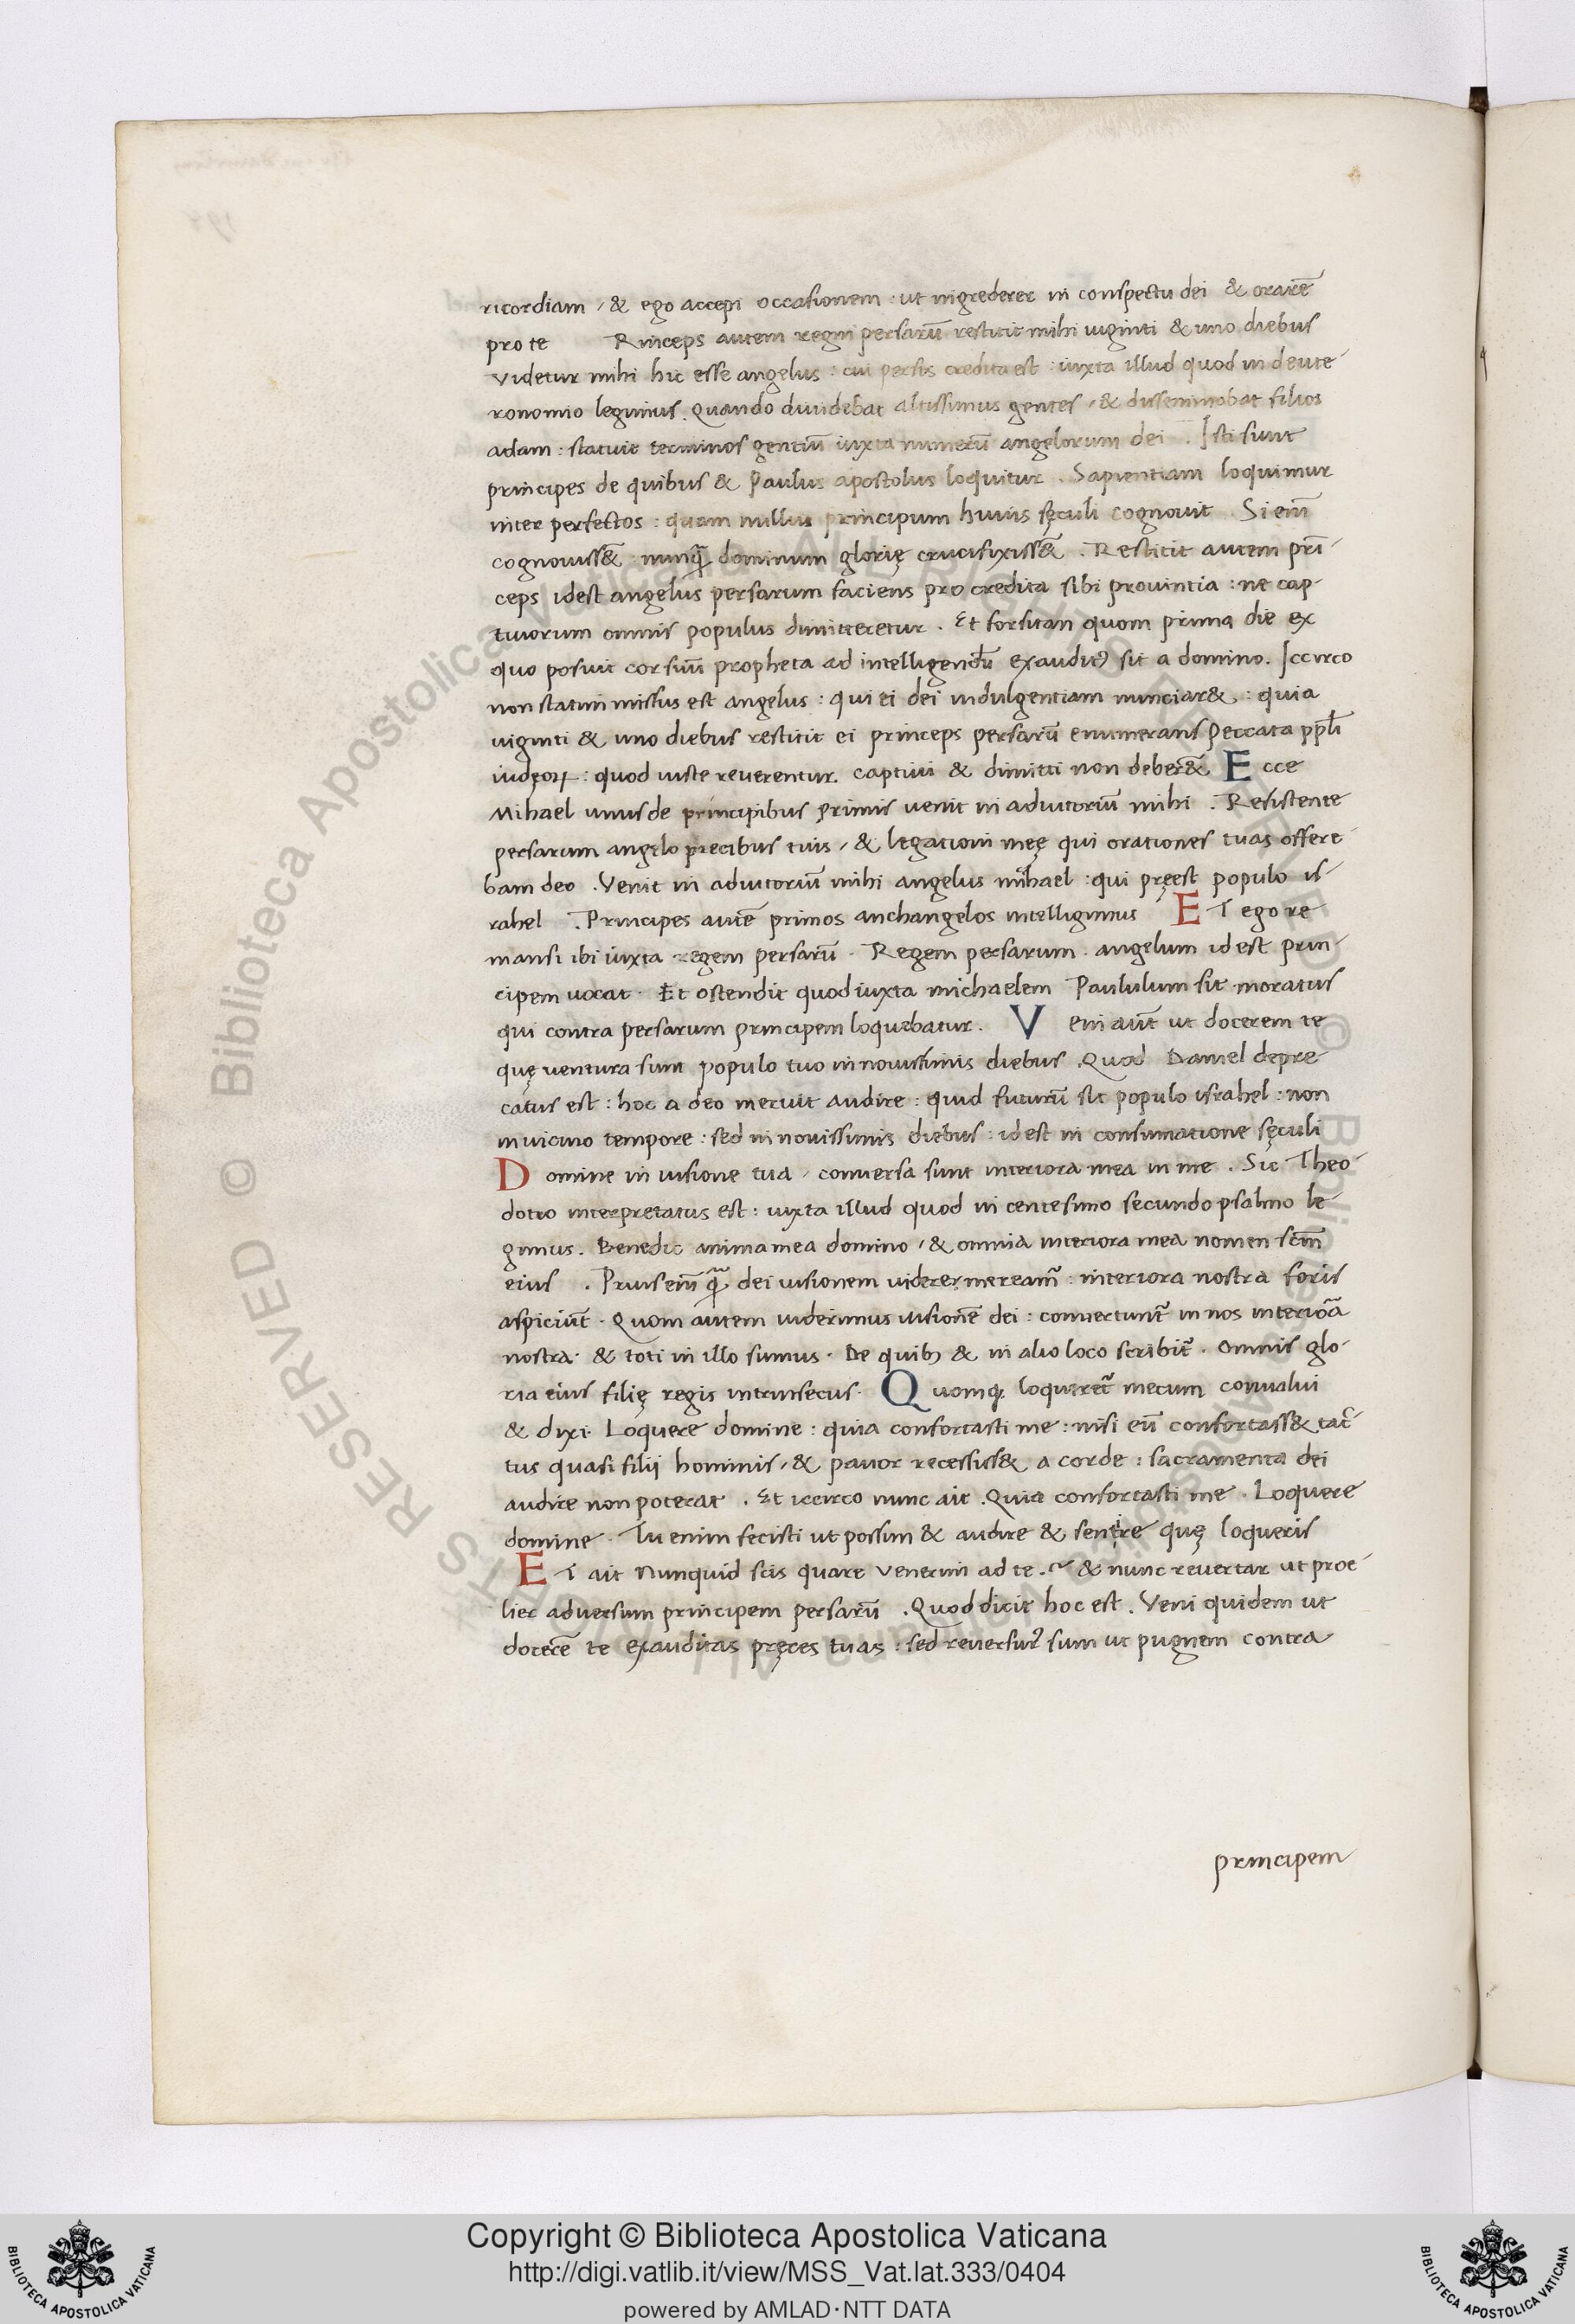 ricordiam / & ego accepi occasionem : ut ingrederer in conspectu dei & orarē
pro te Rinceps autem regni persarū restitit mihi uiginti & uno diebus
Videtur mihi hic esse angelus : cui persis credita est : iuxta illud quod in deute-
ronomio legimus . Quando diuidebat altissimus gentes / & disseminabat filios
adam : statuit terminos gentiū iuxta numerū angelorum dei . Isti sunt
principes de quibus & Paulus apostolus loquitur . Sapientiam loquimur
inter perfectos : quam nullus principum huius sęculi cognouit . Si eni̅
cognouiss& nunq̃ dominum glorię crucifixiss& . Restitit autem pri̅-
ceps idest angelus persarum faciens pro credita sibi prouintia : ne cap-
tiuorum omnis populus dimitteretur . Et forsitan quom prima die ex
quo posuit cor suū propheta ad intelligendū exauditꝰ sit a domino . Iccirco
non statim missus est angelus : qui ei dei indulgentiam nunciar& : quia
uiginti & uno diebus restitit ei princeps persarū enumerans peccata ppl̅i
iudęoꝝ : quod iuste reuerentur . captiui & dimitti non deber& Ecce
Mihael unus de principibus primis uenit in adiutoriū mihi . Resistente
persarum angelo precibus tuis / & legationi meę qui orationes tuas offere-
bam deo . Venit in adiutoriū mihi angelus mihael : qui pręest populo is-
rahel . Principes autē primos anchangelos intelligimus ET ego re
mansi ibi iuxta regem persarū . Regem persarum . angelum idest prin-
cipem uocat . Et ostendit quod iuxta michaelem Paululum sit moratus
qui contra persarum principem loquebatur . Veni aūt ut docerem te
quę uentura sunt populo tuo in nouissimis diebus . Quod Daniel depre
catus est : hoc a deo meruit audire : quid futurū sit populo israhel : non
in uicino tempore : sed in nouissimis diebus : idest in consumatione sęculi
Domine in uisione tua / conuersa sunt interiora mea in me . Sic Theo-
dotio interpretatus est : iuxta illud quod in centesimo secundo psalmo le-
gimus . Benedic anima mea domino / & omnia interiora mea nomen scm̅
eius . Prius eni̅ q̃ dei uisionem uidere mereamr̃ : interiora nostra foris
aspiciūt . Quom autem uiderimus uisionē dei : conuertuntr̃ in nos interiōa
nostra . & toti in illo sumus . De quibꝫ & in alio loco scribitr̃ . Omnis glo-
ria eius filię regis intrinsecus . Quomqꝫ loqueretr̃ mecum conualui
& dixi . Loquere domine : quia confortasti me : nisi eū confortass& tac-
tus quasi filij hominis / & pauor recessiss& a corde : sacramenta dei
audire non poterat . Et iccirco nunc ait . Quia confortasti me . Loquere
domine . Tu enim fecisti ut possim & audire & sentire quę loqueris
ET ait Nunquid scis quare Venerim ad te . & nunc reuertar ut proe-
lier aduersum principem persarū . Quod dicit hoc est . Veni quidem ut
docerē te exauditas pręces tuas : sed reuersurꝰ sum ut pugnem contra
principem
© Biblioteca Apostolica Vaticana ALL RIGHTS RESERVED
Copyright © Biblioteca Apostolica Vaticana
http://digi.vatlib.it/view/MSS_Vat.lat.333/0404
powered by AMLAD·NTT DATA
BIBLIOTECA APOSTOLICA VATICANA
BIBLIOTECA APOSTOLICA VATICANA